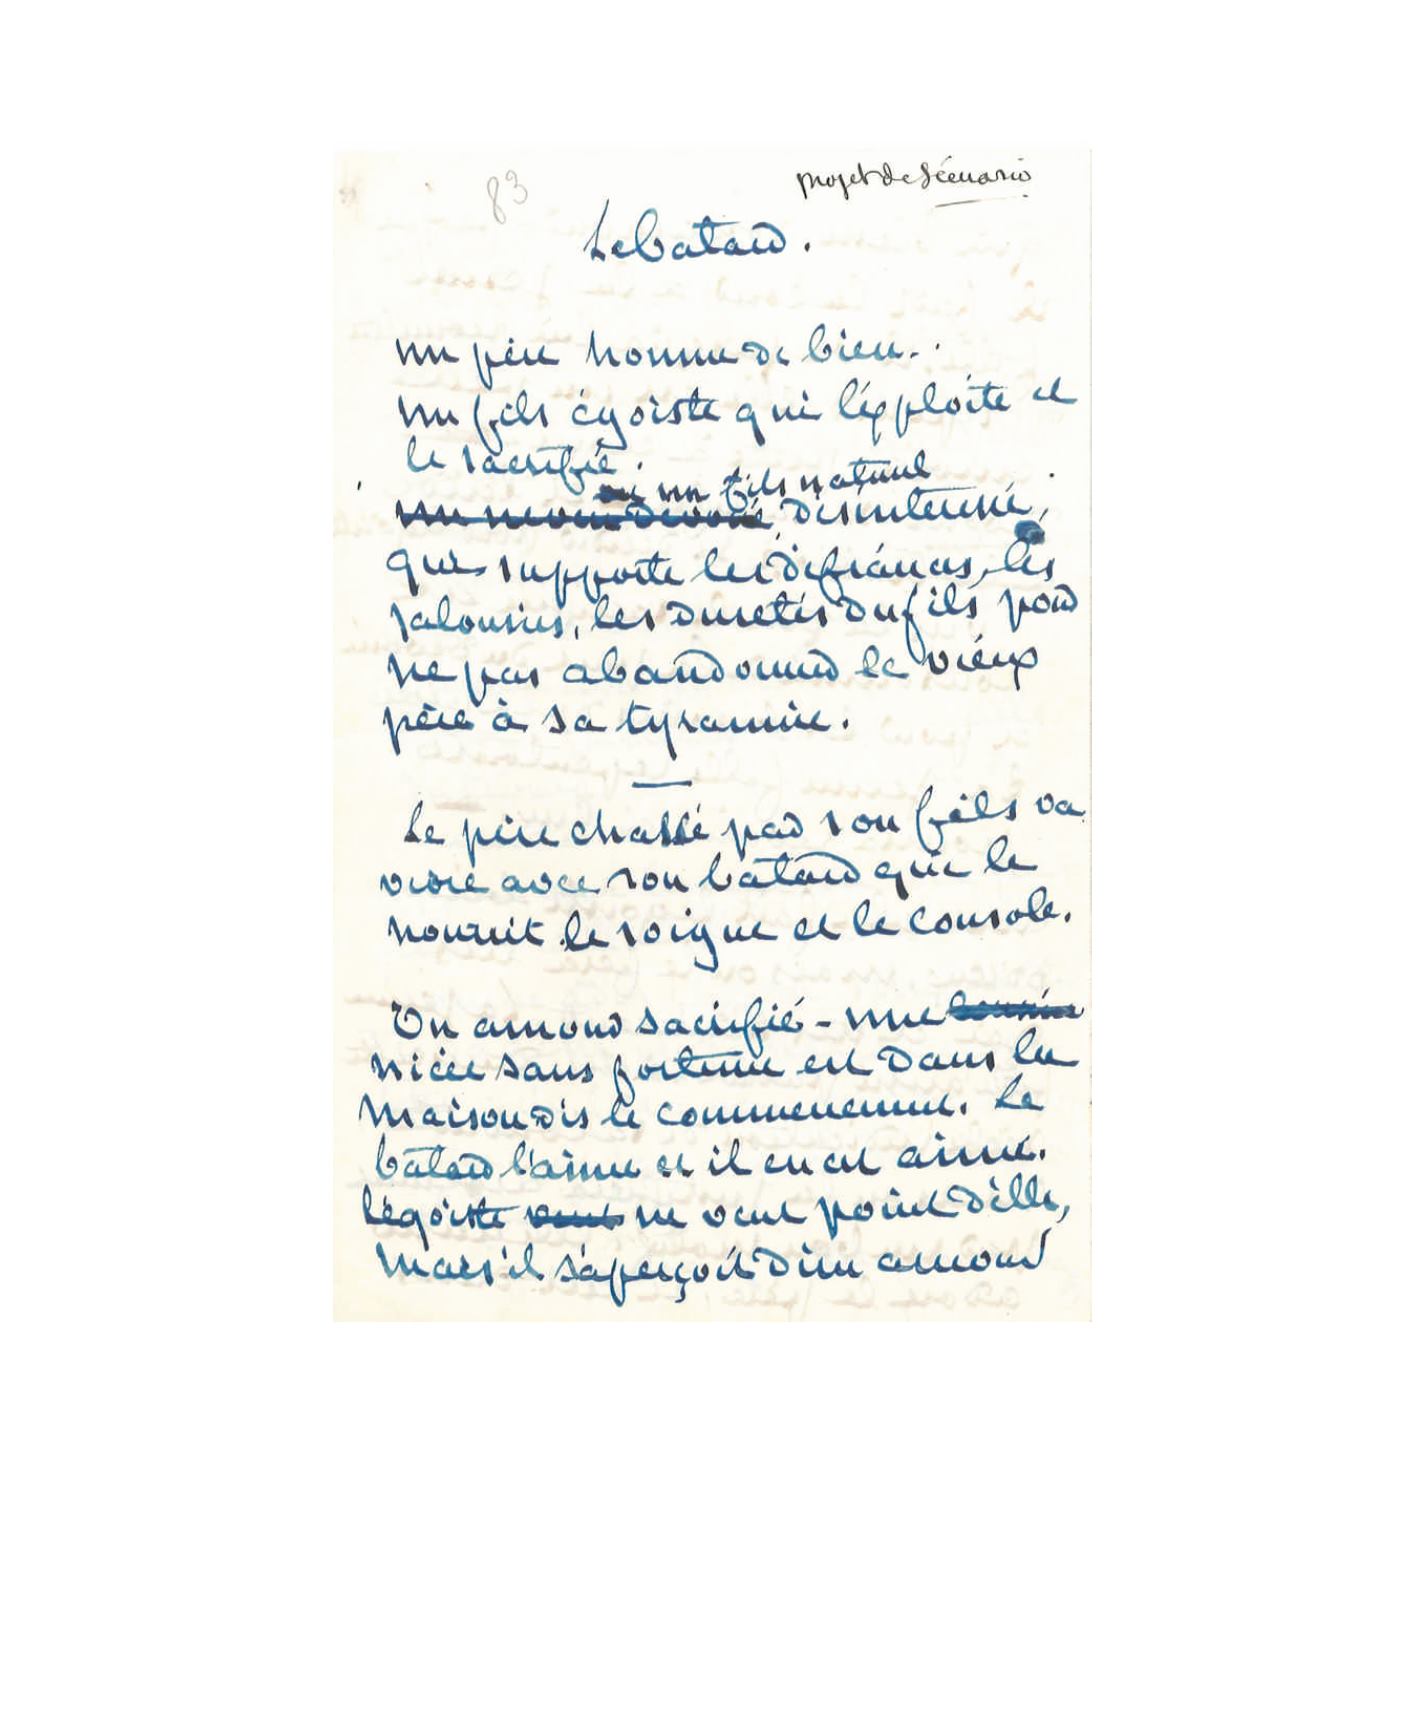 83
projet de scénario
Le batard.
un père homme de bien..
un fils égoiste qui l'exploite et
le sacrifie.
un fils naturel
un neveu dévoué, désintéressé,
qui supporte les défiances, les
jalousies, les duretés du fils pour
ne pas abandonner le vieux
père à sa tyrannie.
Le père chassé par son fils va
vivre avec son bâtard qui le
nourrit le soigne et le console.
Un amour sacrifié - une
nièce sans fortune est dans la
maison dès le commencement. Le
bâtard l'aime et il en est aimé.
L'égoïste veut ne veut point d'elle,
mais s'il s'aperçoit d'un amour